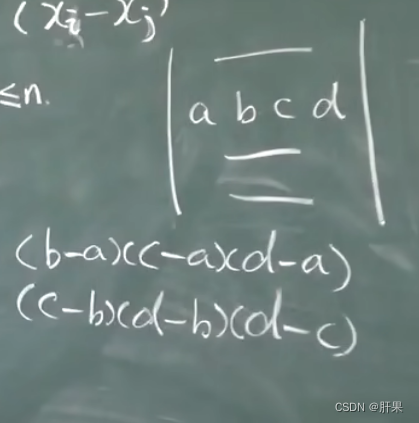 (xi-xj)
≤n.
a b c d
(b-a)(c-a)(d-a)
(c-b)(d-b)(d-c)
CSDN @肝果